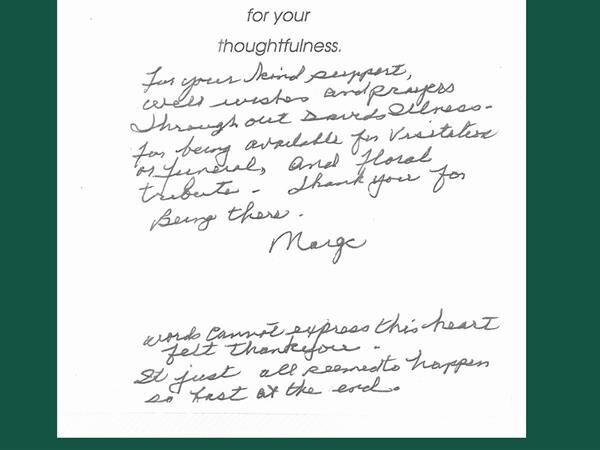 for your
thoughtfulness.
For your kind support,
well wishes and prayers
Through out Davids Illness-
For being available for Visitation
or funeral, and Floral
tribute - Thank you for
Being there.
Marge
words cannot express this heart
felt thankyou -
It just all seemed to happen
so fast at the end.